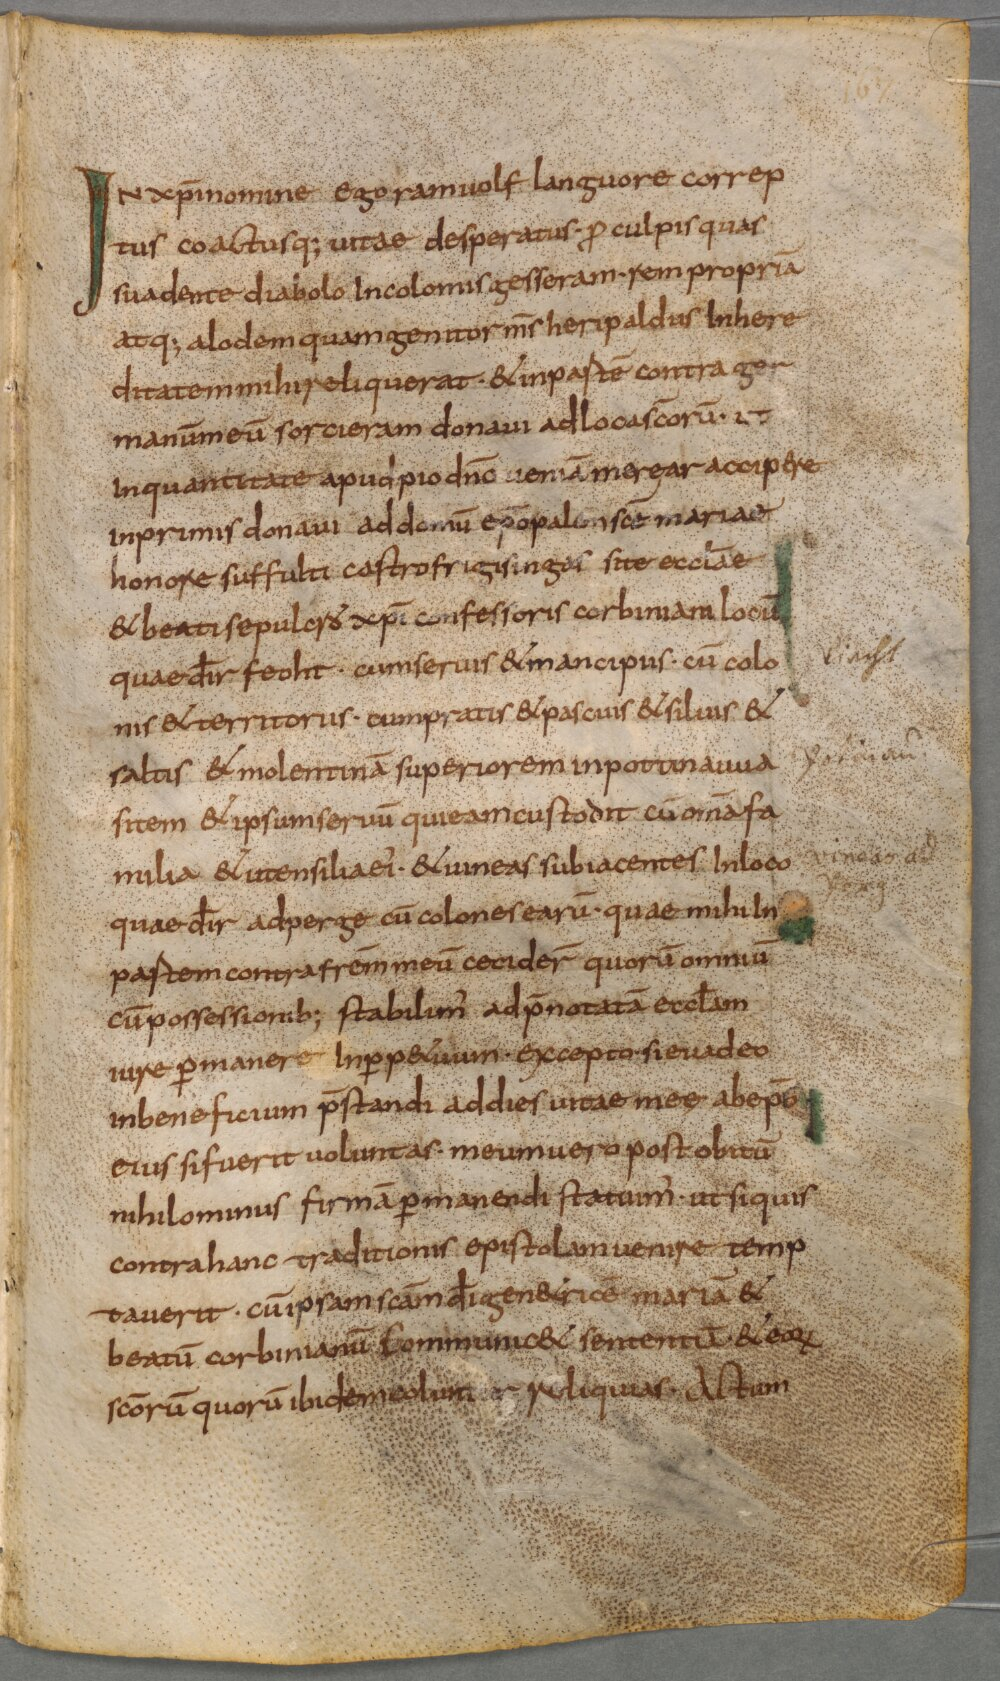 167
IN xp̄i nomine ego ramuolf languore correp
tus coactusq; uitae desperatus · p̄ culpis quas
suadente diabolo Incolomis gesseram · rem propriā
atq; alodem quam genitor m̄s heripaldus In here
ditatem mihi reliquerat · & in partē contra ger
manum meū sortieram donaui ad loca scōrū · ut
In quantitate apud pio dn̄o ueniā merear accipere
inprimis donaui ad domū ep̄opalem scē mariae
honore suffulti castro frigisingas site eccl̄ae
& beati sepulcro xp̄i confessoris corbiniani locū
quae dr̄ feoht · cum seruis & mancipiis · cū colo
nis & territoriis · cum pratis & pascuis & siluis &
saltis & molentinā superiorem in pottinauua
sitem & ipsum seruū qui eam custodit cū om̄a fa
milia & utensilia ei · & uineas subiacentes In loco
quae dr̄ ad perge cū colones earū · quae mihi In
partem contra frēm meū ceciderٓ quorū omniū
cū possessionib; stabilim̄ ad p̄notatā eccl̄am
iure p̄manere In p̄p&uum · excepto si euadeo
in beneficium p̄standi ad dies uitae mee ab ep̄o
eius si fuerit uoluntas · meum uero post obitū
nihilominus firmā p̄manendi statuim̄ · ut si quis
contra hanc traditionis epistolam uenire temp
tauerit · cū ipsam scām dī gen&ricē mariā &
beatū corbinianū Communic& sententiā · & eoꝝ
scōrū quorū ibidem coluntur reliquias · Actum
viacht
vineas ad
perg